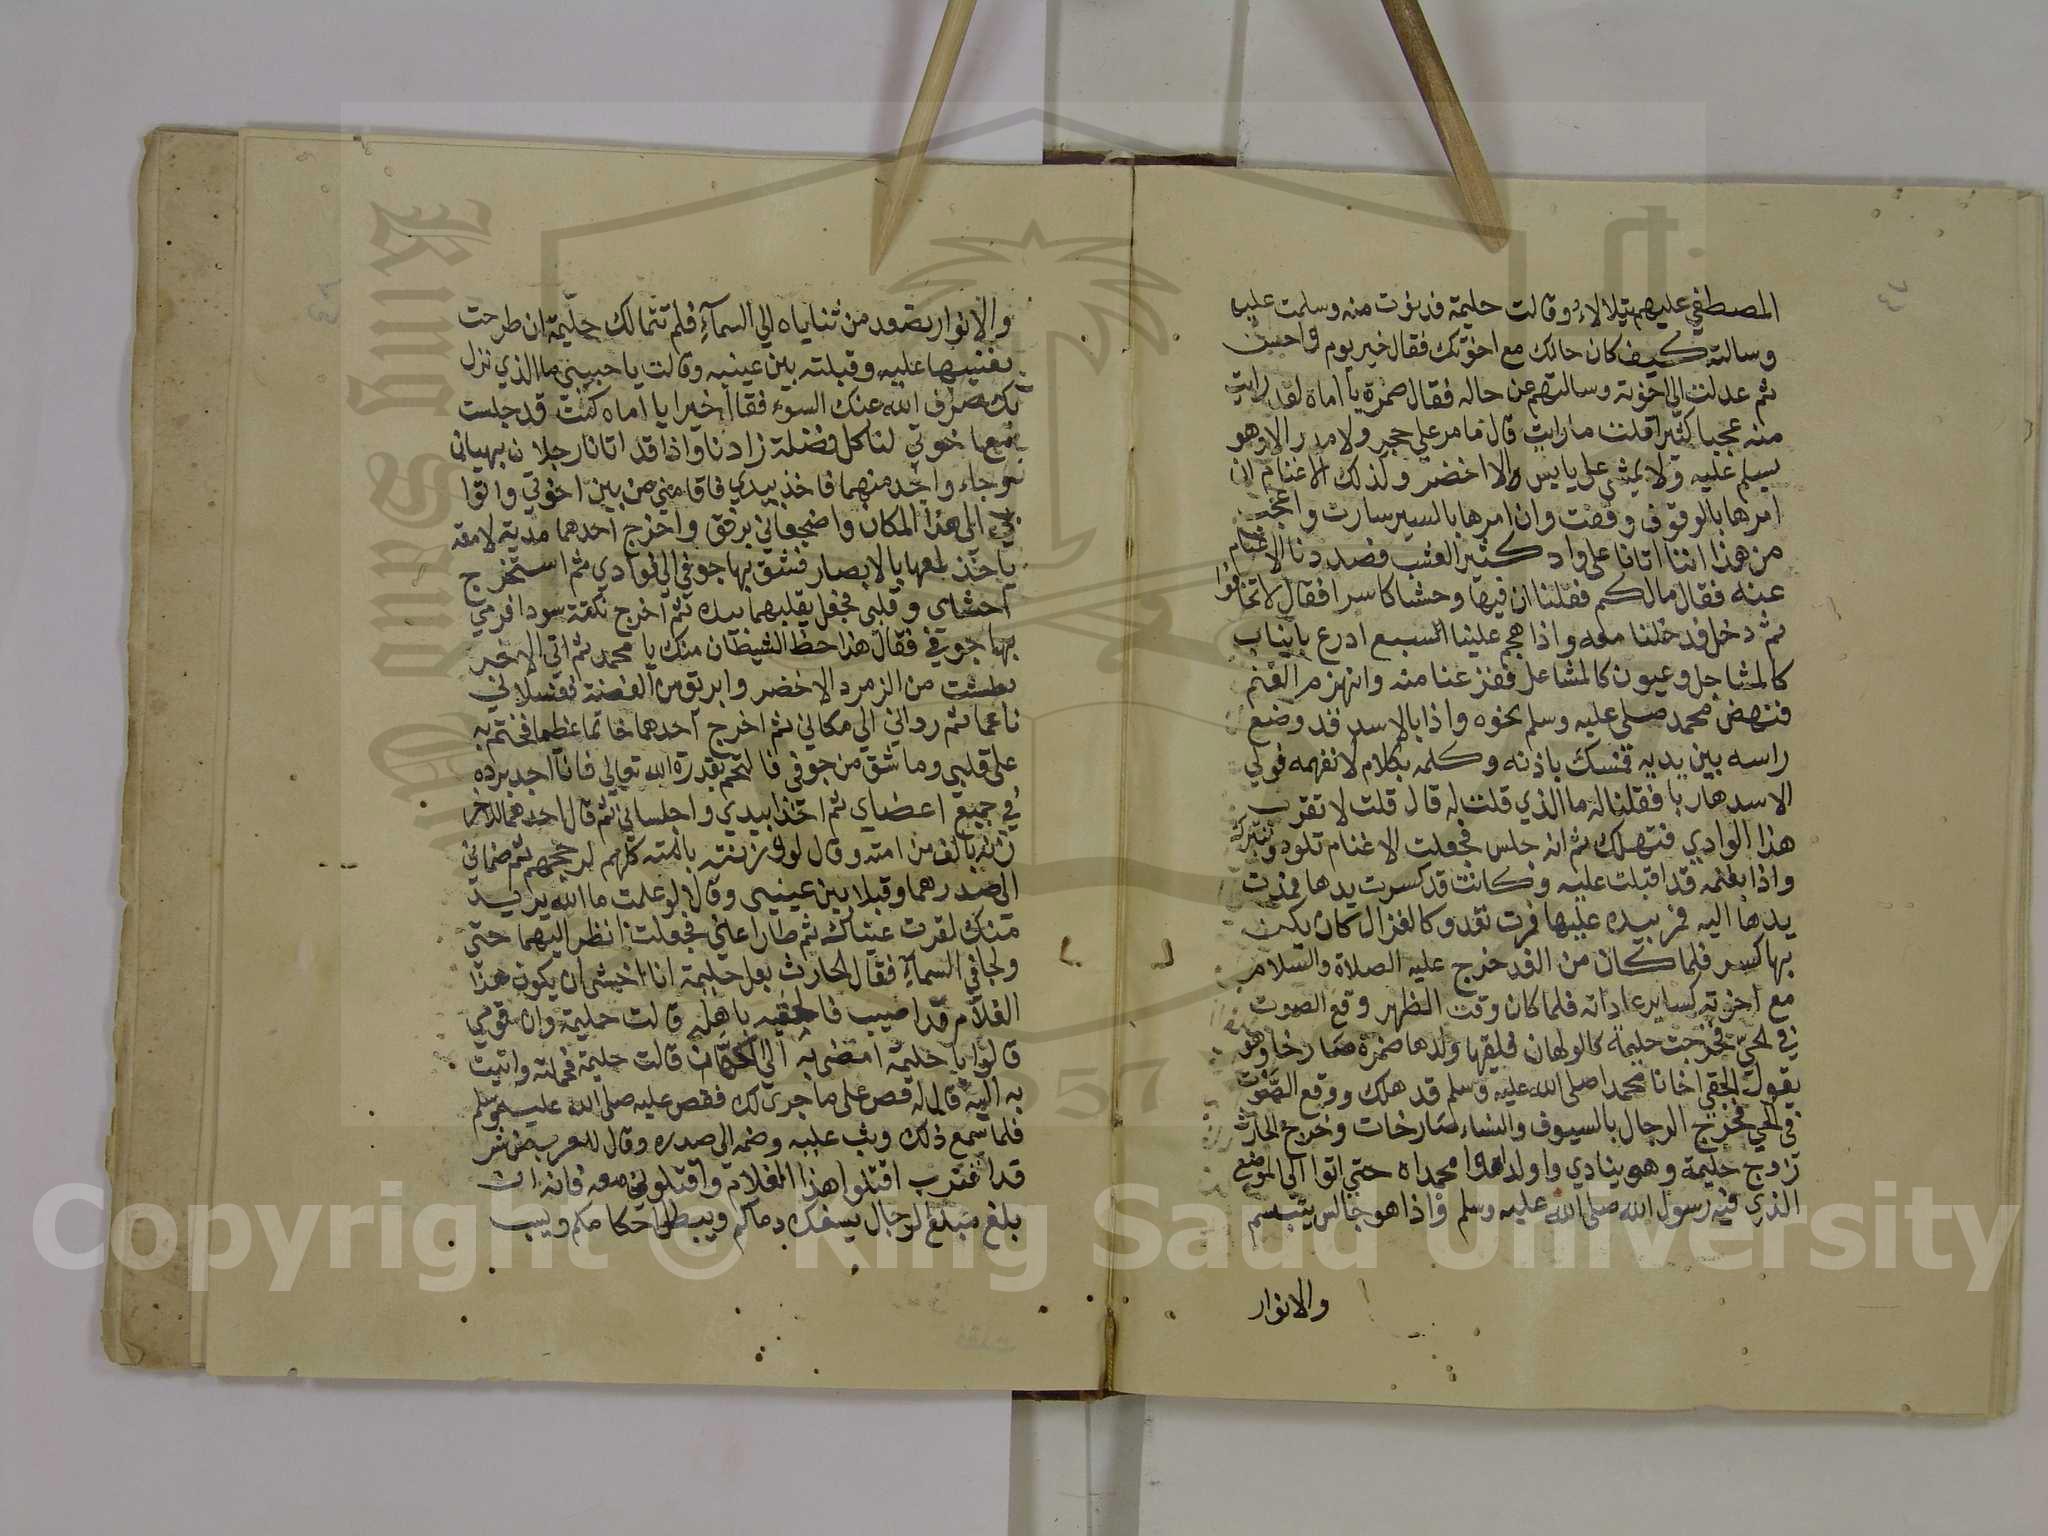 المصطفي عليهم يتلالاء وقالت حليمة فدنوت منه وسلمت عليه
وسالته كيف كان حالك مع اخوتك فقال خير يوم واحسن
ثم عدلت الي اخوته وسالتهم عن حاله فقال ضمرة يا اماه لقد رايت
منه عجبا كثيرا قلت ما رايت قال ما مر علي حجر ولا مدر الا وهو
يسلم عليه ولا يمشي علي يابس الا اخضر وكذلك الاغنام ان
امرها بالوقوف وقفت وان امرها بالسير سارت واعجب
من هذا اننا اتانا علي واد كثير العشب فصددنا الاغنام
عنه فقال مالكم فقلنا ان فيها وحشا كاسرا فقال لا تخافوا
ثم دخل فدخلنا معه واذا هجم علينا السبع ادرع بانياب
كالمشاجل وعيون كالمشاعل ففزعنا منه وانهزم الغنم
فنهض محمد صلي عليه وسلم نحوه واذا بالاسد قد وضع
راسه بين يديه فمسك باذنه وكلمه بكلام لا نفهمه فولي
الاسد هاربا فقلنا له ما الذي قلت له قال قلت لا تقرب
هذا الوادي فتهلك ثم انه جلس فجعلت الاغنام تلوذ وتتبركه
واذا بغنمه قد اقبلت عليه وكانت قد كسرت يدها فمدت
يدها اليه فمر بيده عليها فمرت تغدو كالغزال كان لم يكن
بها كسر فلما كان من الغد خرج عليه الصلاة والسلام
مع اخوته كساير عاداته فلما كان وقت الظهر وقع الصوت
في الحيّ فخرجت حليمة كالولهان فلقيها ولدها ضمرة صارخا وهو
يقول الحقي اخانا محمدا صلي الله عليه وسلم قد هلك ووقع الصوت
في الحي فخرج الرجال بالسيوف والنساء صارخات وخرج الحارث
زوج حليمة وهو ينادي واولداه وا محمداه حتي اتوا الي الموضع
الذي فيه رسول الله صلي الله عليه وسلم واذا هو جالس يتبسم
والانوار
والانوار تصعد من ثناياه الي السمآء فلم تتمالك حليمة ان طرحت
بنفسها عليه وقبلته بين عينيه وقالت يا حبيبي ما الذي نزل
بك صرف الله عنك السوء فقال خيرا يا اماه كنت قد جلست
مع اخوتي لناكل فضلة زادنا واذا قد اتانا رجلان بهيان
وجاء واحد منهما فاخذ بيدي فاقامني من بين اخوتي واتوا
بي الي هذا المكان واضجعاني برفق واخرج احدهما مدية لامعه
ياخذ لمعها بالابصار فشق بها جوفي الي فوادي ثم استخرج
احشاي وقلبي فجعل يقلبهما بيده ثم اخرج نكتة سودا فرمي
بها جوفي فقال هذا حظ الشيطان منك يا محمد ثم اتي الاخر
بطشت من الزمرد الاخضر وابريق من الفضة فغسلاني
ناعما ثم رداني الي مكاني ثم اخرج احدهما خاتما عظيما فختم به
علي قلبي وما شق من جوفي فالتحم بقدرة الله تعالي فانا اجد برده
في جميع اعضاي ثم اخذا بيدي واجلساني ثم قال احدهما للاخر
زنه بالف من امته وقال لو وزنته بامته كلهم لرجحهم ثم ضماني
الي صدرهما وقبلا بين عيني وقالا لو علمت ما الله يريد
منك لقرت عيناك ثم طارا عني فجعلت انظر اليهما حتي
ولجا في السمآء فقال الحارث بعل حليمة انا اخشي ان يكون هذا
الغلام قد اصيب فالحقيه باهله قالت حليمة وان قومي
قالوا يا حليمة امضي به الي الكهان قالت حليمة فحملته واتيت
به اليه قال له قص علي ما جري لك فقص عليه صلي الله عليه وسلم
فلما سمع ذلك وثب عليه وضمه الي صدره وقال للعرب من شر
قد اقترب اقتلوا هذا الغلام واقتلوني معه فانه ان
بلغ مبلغ الرجال يسفك دماكم ويبطل احكامكم ويسب
Copyright © King Saud University
King Saud University
1957